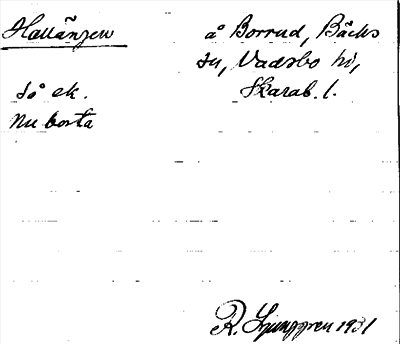 Hallängen å Borrud, Bäcks
sn, Vadsbo hd,
Så ek. Skarab. l.
Nu borta
R. Ljunggren 1931